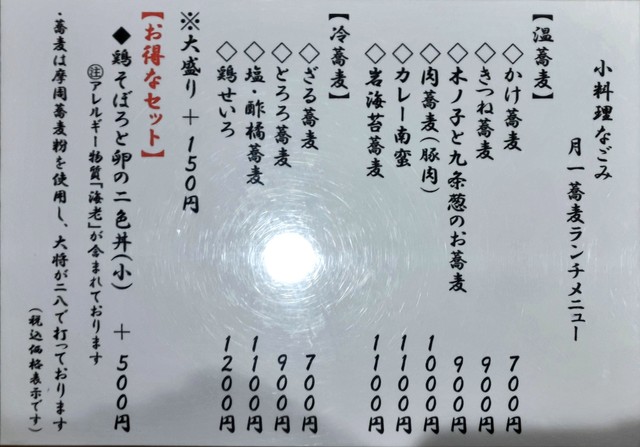 小料理なごみ
月一蕎麦ランチメニュー
【温蕎麦】
◇かけ蕎麦 700円
◇きつね蕎麦 900円
◇木ノ子と九条葱のお蕎麦 900円
◇肉蕎麦(豚肉) 1000円
◇カレー南蛮 1100円
◇岩海苔蕎麦 1100円
【冷蕎麦】
◇ざる蕎麦 700円
◇とろろ蕎麦 900円
◇塩・酢橘蕎麦 1100円
◇鶏せいろ 1200円
※大盛り+150円
【お得なセット】
◆鶏そぼろと卵の二色丼(小) +500円
㊟アレルギー物質「海老」が含まれております
・蕎麦は摩周蕎麦粉を使用し、大将が二八で打っております
(税込価格表示です)